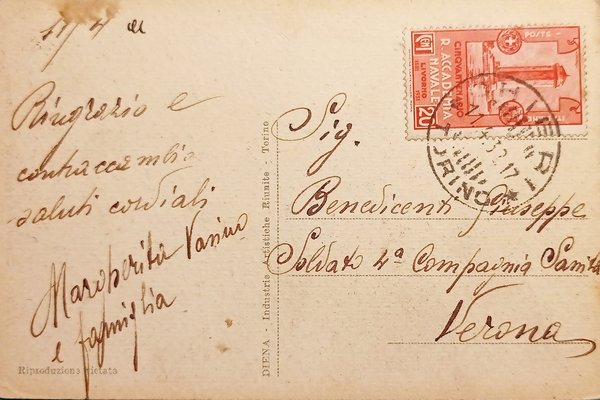 Ringrazio e
contraccambio
saluti cordiali
Margherita
e famiglia
Riproduzione vietata
DIENA - Industrie Artistiche Riunite - Torino
POSTE
ITALIANE
CINQUANTENARIO
R. ACCADEMIA
NAVALE
LIVORNO
1881 1931
CENT 20
Sig.
Benedicenti Giuseppe
Soldato 4ª Compagnia Sanità
Verona